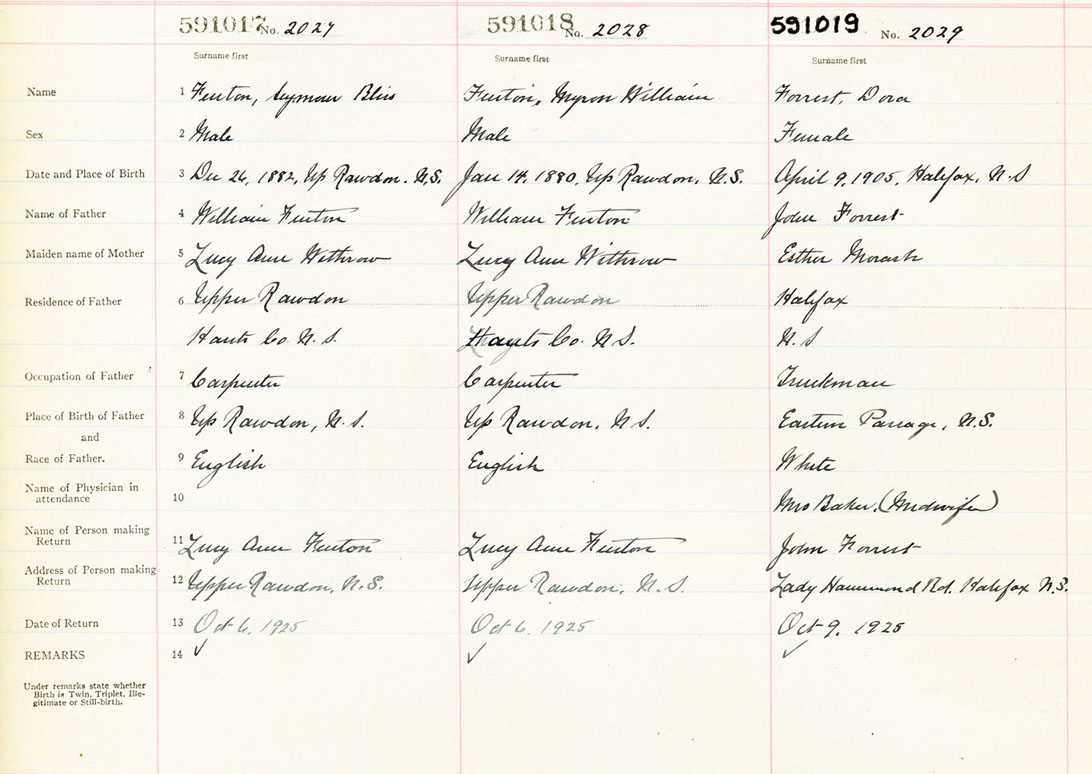 591017 No. 2027 591018 No. 2028 591019 No. 2029
Surname first Surname first Surname first
Name 1 Fenton, Seymour Bliss Fenton, Myron William Forrest, Dora
Sex 2 Male Male Female
Date and Place of Birth 3 Dec 26, 1882, Up Rawdon. N.S. Jan 14, 1880, Up Rawdon, N.S. April 9, 1905, Halifax, N.S
Name of Father 4 William Fenton William Fenton John Forrest
Maiden name of Mother 5 Lucy Ann Withrow Lucy Ann Withrow Esther Morash
Residence of Father 6 Upper Rawdon Upper Rawdon Halifax
Hants Co. N.S. Hants Co. N.S. N.S
Occupation of Father 7 Carpenter Carpenter Truckman
Place of Birth of Father 8 Up Rawdon, N.S. Up Rawdon, N.S. Eastern Passage, N.S.
and
Race of Father. 9 English English White
Name of Physician in
attendance 10 Mrs Baker. (Midwife)
Name of Person making
Return 11 Lucy Ann Fenton Lucy Ann Fenton John Forrest
Address of Person making
Return 12 Upper Rawdon, N.S. Upper Rawdon, N.S. Lady Hammond Rd. Halifax N.S.
Date of Return 13 Oct 6, 1925 Oct 6, 1925 Oct 9, 1925
REMARKS 14 ✓ ✓ ✓
Under remarks state whether
Birth is Twin, Triplet, Ille-
gitimate or Still-birth.